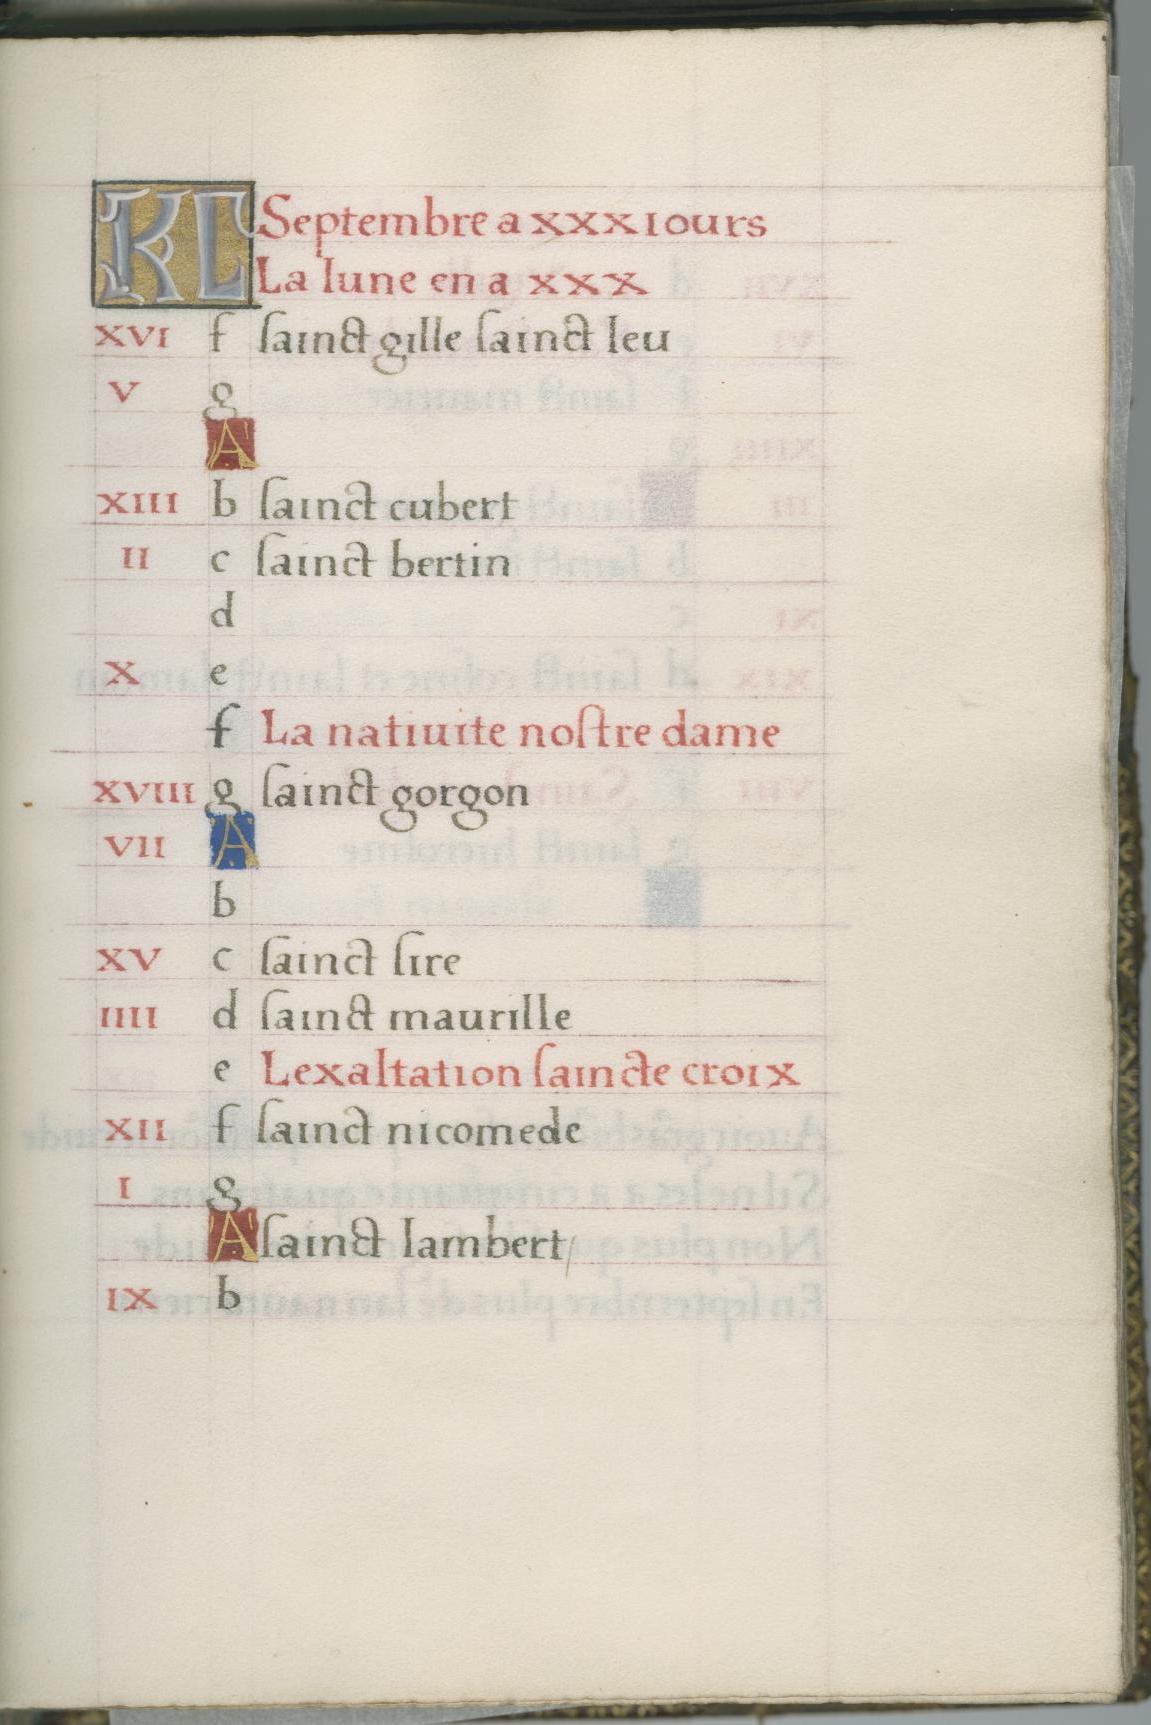 KL Septembre a xxx iours
La lune en a xxx
XVI f sainct gille sainct leu
V g
A
XIII b sainct cubert
II c sainct bertin
d
X e
f La natiuite nostre dame
XVIII g sainct gorgon
VII A
b
XV c sainct sire
IIII d sainct maurille
e Lexaltation saincte croix
XII f sainct nicomede
I g
A sainct lambert
IX b